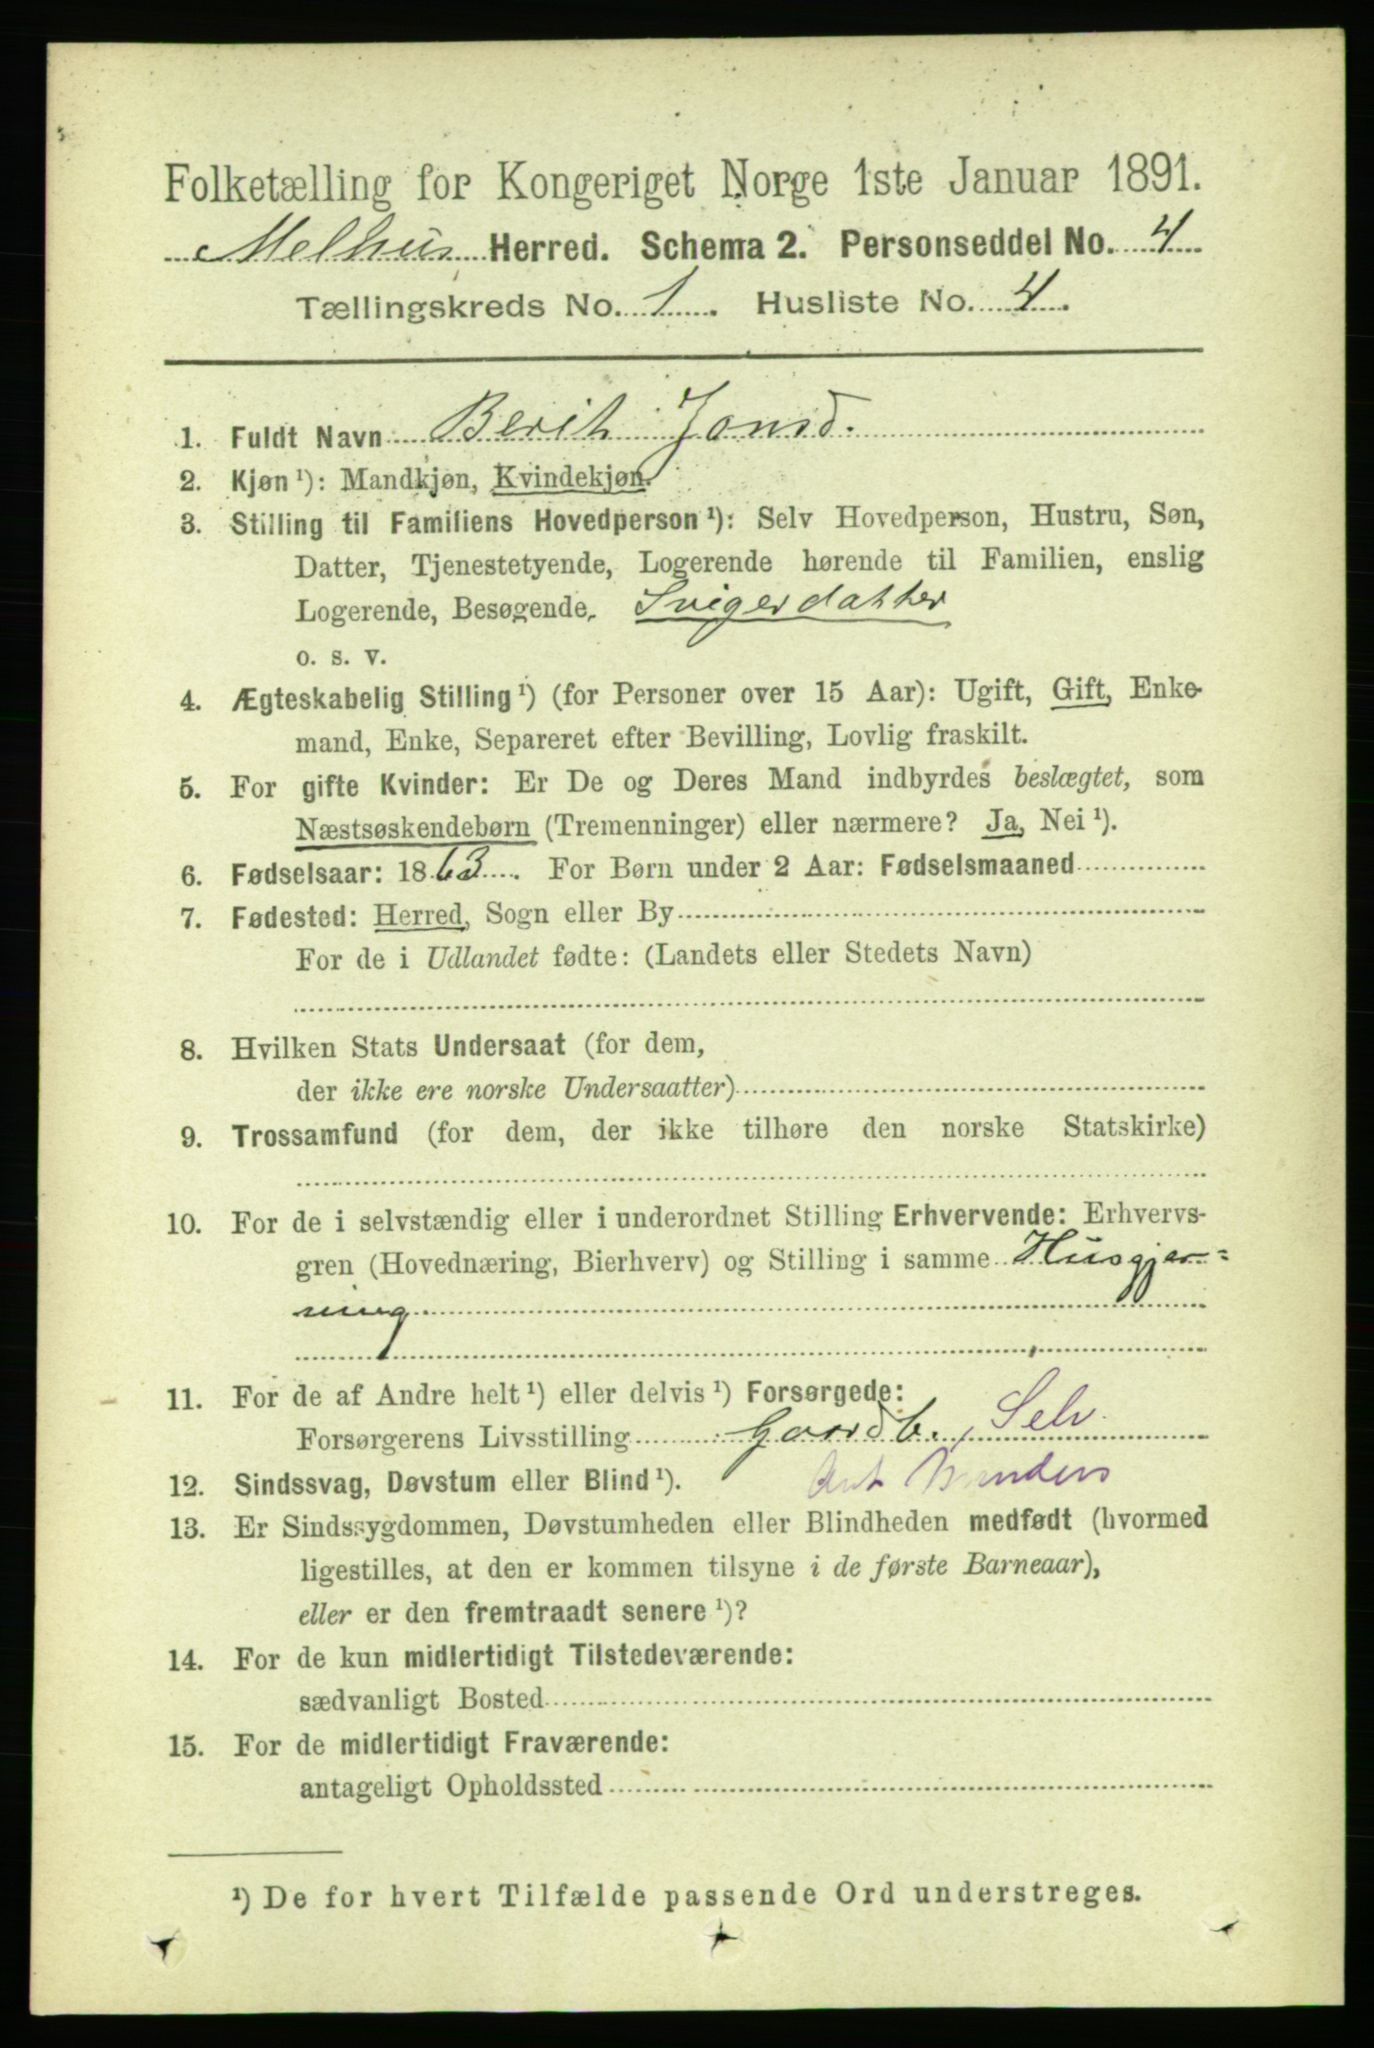 Folketælling for Kongeriget Norge 1ste Januar 1891.
Melhus Herred. Schema 2. Personseddel No. 4
Tællingskreds No. 1. Husliste No. 4.
1. Fuldt Navn Berit Jonsd.
2. Kjøn ¹): Mandkjøn, Kvindekjøn.
3. Stilling til Familiens Hovedperson ¹): Selv Hovedperson, Hustru, Søn,
Datter, Tjenestetyende, Logerende hørende til Familien, enslig
Logerende, Besøgende, Svigerdatter
o. s. v.
4. Ægteskabelig Stilling ¹) (for Personer over 15 Aar): Ugift, Gift, Enke-
mand, Enke, Separeret efter Bevilling, Lovlig fraskilt.
5. For gifte Kvinder: Er De og Deres Mand indbyrdes beslægtet, som
Næstsøskendebørn (Tremenninger) eller nærmere? Ja, Nei ¹).
6. Fødselsaar: 1863. For Børn under 2 Aar: Fødselsmaaned
7. Fødested: Herred, Sogn eller By
For de i Udlandet fødte: (Landets eller Stedets Navn)
8. Hvilken Stats Undersaat (for dem,
der ikke ere norske Undersaatter)
9. Trossamfund (for dem, der ikke tilhøre den norske Statskirke)
10. For de i selvstændig eller i underordnet Stilling Erhvervende: Erhvervs-
gren (Hovednæring, Bierhverv) og Stilling i samme Husgjer=
ning
11. For de af Andre helt ¹) eller delvis ¹) Forsørgede:
Forsørgerens Livsstilling Gaardb., Selv.
12. Sindssvag, Døvstum eller Blind ¹).
13. Er Sindssygdommen, Døvstumheden eller Blindheden medfødt (hvormed
ligestilles, at den er kommen tilsyne i de første Barneaar),
eller er den fremtraadt senere ¹)?
14. For de kun midlertidigt Tilstedeværende:
sædvanligt Bosted
15. For de midlertidigt Fraværende:
antageligt Opholdssted
¹) De for hvert Tilfælde passende Ord understreges.